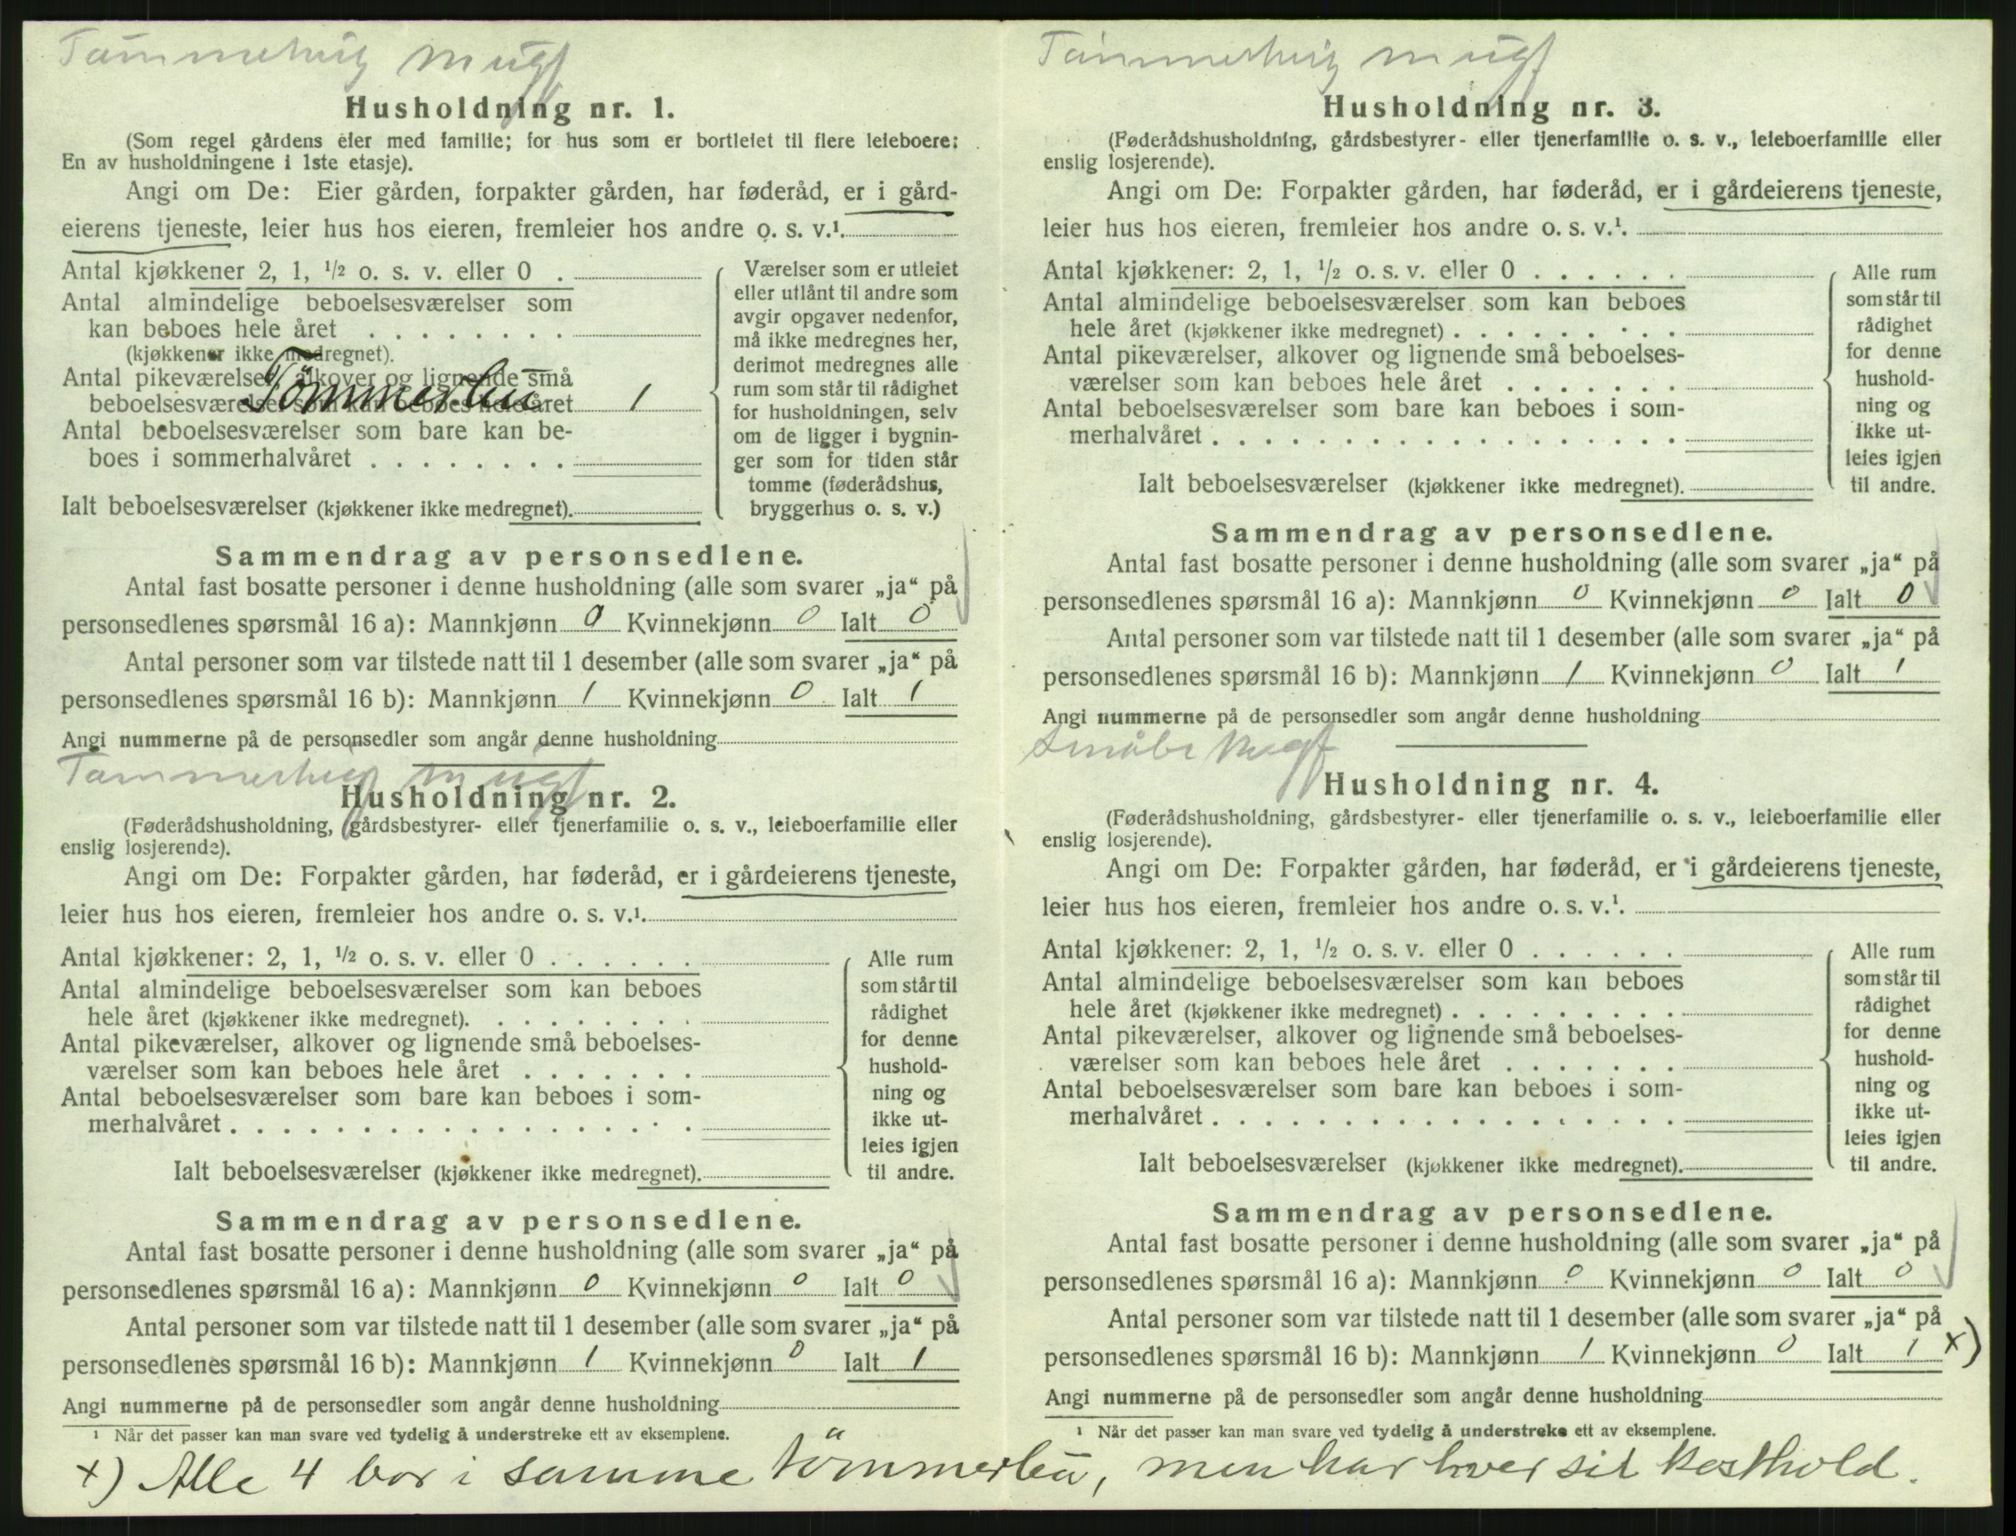 Husholdning nr. 1.
(Som regel gårdens eier med familie; for hus som er bortleiet til flere leieboere:
En av husholdningene i 1ste etasje).
Angi om De: Eier gården, forpakter gården, har føderåd, er i gård-
eierens tjeneste, leier hus hos eieren, fremleier hos andre o. s. v.¹
Antal kjøkkener 2, 1, ½ o. s. v. eller 0 .
Antal almindelige beboelsesværelser som
kan beboes hele året . . . . . . . .
(kjøkkener ikke medregnet).
Antal pikeværelser, alkover og lignende små
beboelsesværelser som kan beboes hele året 1
Tömmerbu
Antal beboelsesværelser som bare kan be-
boes i sommerhalvåret . . . . . . . .
Ialt beboelsesværelser (kjøkkener ikke medregnet).
Værelser som er utleiet
eller utlånt til andre som
avgir opgaver nedenfor,
må ikke medregnes her,
derimot medregnes alle
rum som står til rådighet
for husholdningen, selv
om de ligger i bygnin-
ger som for tiden står
tomme (føderådshus,
bryggerhus o. s. v.)
Sammendrag av personsedlene.
Antal fast bosatte personer i denne husholdning (alle som svarer „ja“ på
personsedlenes spørsmål 16 a): Mannkjønn 0 Kvinnekjønn 0 Ialt 0
Antal personer som var tilstede natt til 1 desember (alle som svarer „ja“ på
personsedlenes spørsmål 16 b): Mannkjønn 1 Kvinnekjønn 0 Ialt 1
Angi nummerne på de personsedler som angår denne husholdning
Husholdning nr. 2.
(Føderådshusholdning, gårdsbestyrer- eller tjenerfamilie o. s. v., leieboerfamilie eller
enslig losjerende).
Angi om De: Forpakter gården, har føderåd, er i gårdeierens tjeneste,
leier hus hos eieren, fremleier hos andre o. s. v.¹
Antal kjøkkener: 2, 1, ½ o. s. v. eller 0 . . . . . .
Antal almindelige beboelsesværelser som kan beboes
hele året (kjøkkener ikke medregnet). . . . . . . . .
Antal pikeværelser, alkover og lignende små beboelses-
værelser som kan beboes hele året . . . . . . .
Antal beboelsesværelser som bare kan beboes i som-
merhalvåret . . . . . . . . . . . . . . . . . .
Ialt beboelsesværelser (kjøkkener ikke medregnet).
Alle rum
som står til
rådighet
for denne
hushold-
ning og
ikke ut-
leies igjen
til andre.
Sammendrag av personsedlene.
Antal fast bosatte personer i denne husholdning (alle som svarer „ja“ på
personsedlenes spørsmål 16 a): Mannkjønn 0 Kvinnekjønn 0 Ialt 0
Antal personer som var tilstede natt til 1 desember (alle som svarer „ja“ på
personsedlenes spørsmål 16 b): Mannkjønn 1 Kvinnekjønn 0 Ialt 1
Angi nummerne på de personsedler som angår denne husholdning
¹ Når det passer kan man svare ved tydelig å understreke ett av eksemplene.
Husholdning nr. 3.
(Føderådshusholdning, gårdsbestyrer- eller tjenerfamilie o. s. v., leieboerfamilie eller
enslig losjerende).
Angi om De: Forpakter gården, har føderåd, er i gårdeierens tjeneste,
leier hus hos eieren, fremleier hos andre o. s. v.¹
Antal kjøkkener: 2, 1, ½ o. s. v. eller 0 . . . . . .
Antal almindelige beboelsesværelser som kan beboes
hele året (kjøkkener ikke medregnet) . . . . . . . . .
Antal pikeværelser, alkover og lignende små beboelses-
værelser som kan beboes hele året . . . . . . .
Antal beboelsesværelser som bare kan beboes i som-
merhalvåret . . . . . . . . . . . . . . . . . .
Ialt beboelsesværelser (kjøkkener ikke medregnet).
Alle rum
som står til
rådighet
for denne
hushold-
ning og
ikke ut-
leies igjen
til andre.
Sammendrag av personsedlene.
Antal fast bosatte personer i denne husholdning (alle som svarer „ja“ på
personsedlenes spørsmål 16 a): Mannkjønn 0 Kvinnekjønn 0 Ialt 0
Antal personer som var tilstede natt til 1 desember (alle som svarer „ja“ på
personsedlenes spørsmål 16 b): Mannkjønn 1 Kvinnekjønn 0 Ialt 1
Angi nummerne på de personsedler som angår denne husholdning
Husholdning nr. 4.
(Føderådshusholdning, gårdsbestyrer- eller tjenerfamilie o. s. v., leieboerfamilie eller
enslig losjerende).
Angi om De: Forpakter gården, har føderåd, er i gårdeierens tjeneste,
leier hus hos eieren, fremleier hos andre o. s. v.¹
Antal kjøkkener: 2, 1, ½ o. s. v. eller 0 . . . . . .
Antal almindelige beboelsesværelser som kan beboes
hele året (kjøkkener ikke medregnet) . . . . . . . . .
Antal pikeværelser, alkover og lignende små beboelses-
værelser som kan beboes hele året . . . . . . .
Antal beboelsesværelser som bare kan beboes i som-
merhalvåret . . . . . . . . . . . . . . . . . .
Ialt beboelsesværelser (kjøkkener ikke medregnet).
Alle rum
som står til
rådighet
for denne
hushold-
ning og
ikke ut-
leies igjen
til andre.
Sammendrag av personsedlene.
Antal fast bosatte personer i denne husholdning (alle som svarer „ja“ på
personsedlenes spørsmål 16 a): Mannkjønn 0 Kvinnekjønn 0 Ialt 0
Antal personer som var tilstede natt til 1 desember (alle som svarer „ja“ på
personsedlenes spørsmål 16 b): Mannkjønn 1 Kvinnekjønn 0 Ialt 1 x)
Angi nummerne på de personsedler som angår denne husholdning
¹ Når det passer kan man svare ved tydelig å understreke ett av eksemplene.
x) Alle 4 bor i samme tömmerbu, men har hver sit kosthold.